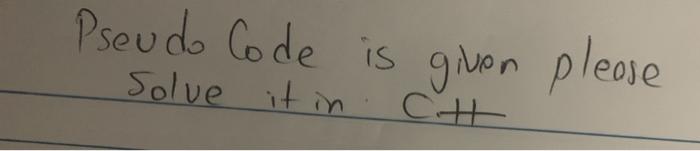 Pseudo Code is given please
Solve it in C++